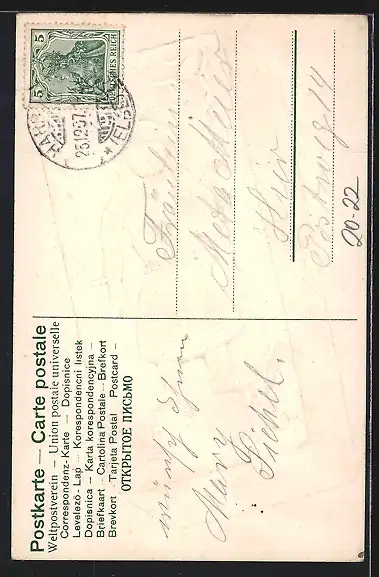 Postkarte — Carte postale
Weltpostverein — Union postale universelle
Correspondenz-Karte — Dopisnice
Levelező-Lap — Korespondencni listek
Dopisnica — Karta korespondencyjna —
Briefkaart — Cartolina Postale — Brefkort
Brevkort — Tarjeta Postal Postcard —
ОТКРЫТОЕ ПИСЬМО
5 5
DEUTSCHES REICH
25.12.07.
Fräulein
Meta
Hier
Postweg 14
20-22
wünscht Ihnen
Marx
Sichel.